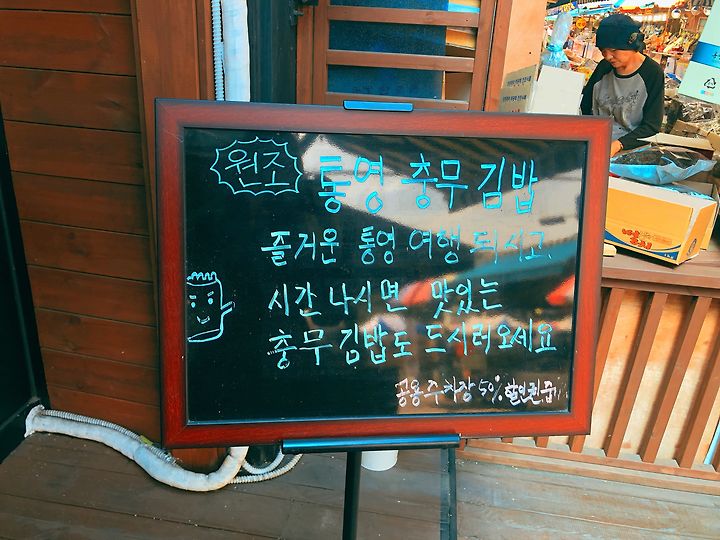 원조 통영 충무 김밥
즐거운 통영 여행 되시고,
시간 나시면 맛있는
충무김밥도 드시러오세요
공용주차장 50% 할인권 줍니다